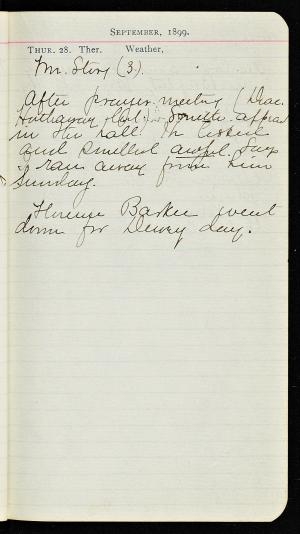 September, 1899.
Thur. 28. Ther. Weather,
Mr. Story (3).
After prayer-meeting (Deac.
Hathaway
in the hall. He
and smelled awful. Says
I ran away from him
Sunday.
Florence Barker went
down for Dewey day.